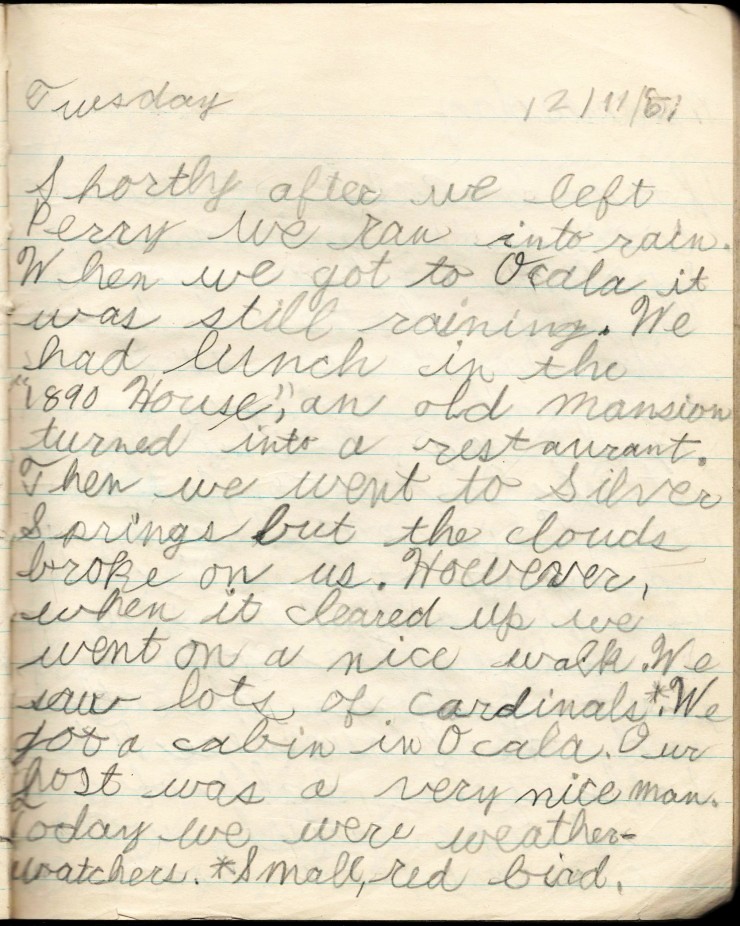 Tuesday 12/11/51
Shortly after we left
Perry we ran into rain.
When we got to Ocala it
was still raining. We
had lunch in the
"1890 House", an old mansion
turned into a restaurant.
Then we went to Silver
Springs but the clouds
broke on us. However,
when it cleared up we
went on a nice walk. We
saw lots of cardinals*. We
got a cabin in Ocala. Our
host was a very nice man.
Today we were weather-
watchers. *Small, red bird.